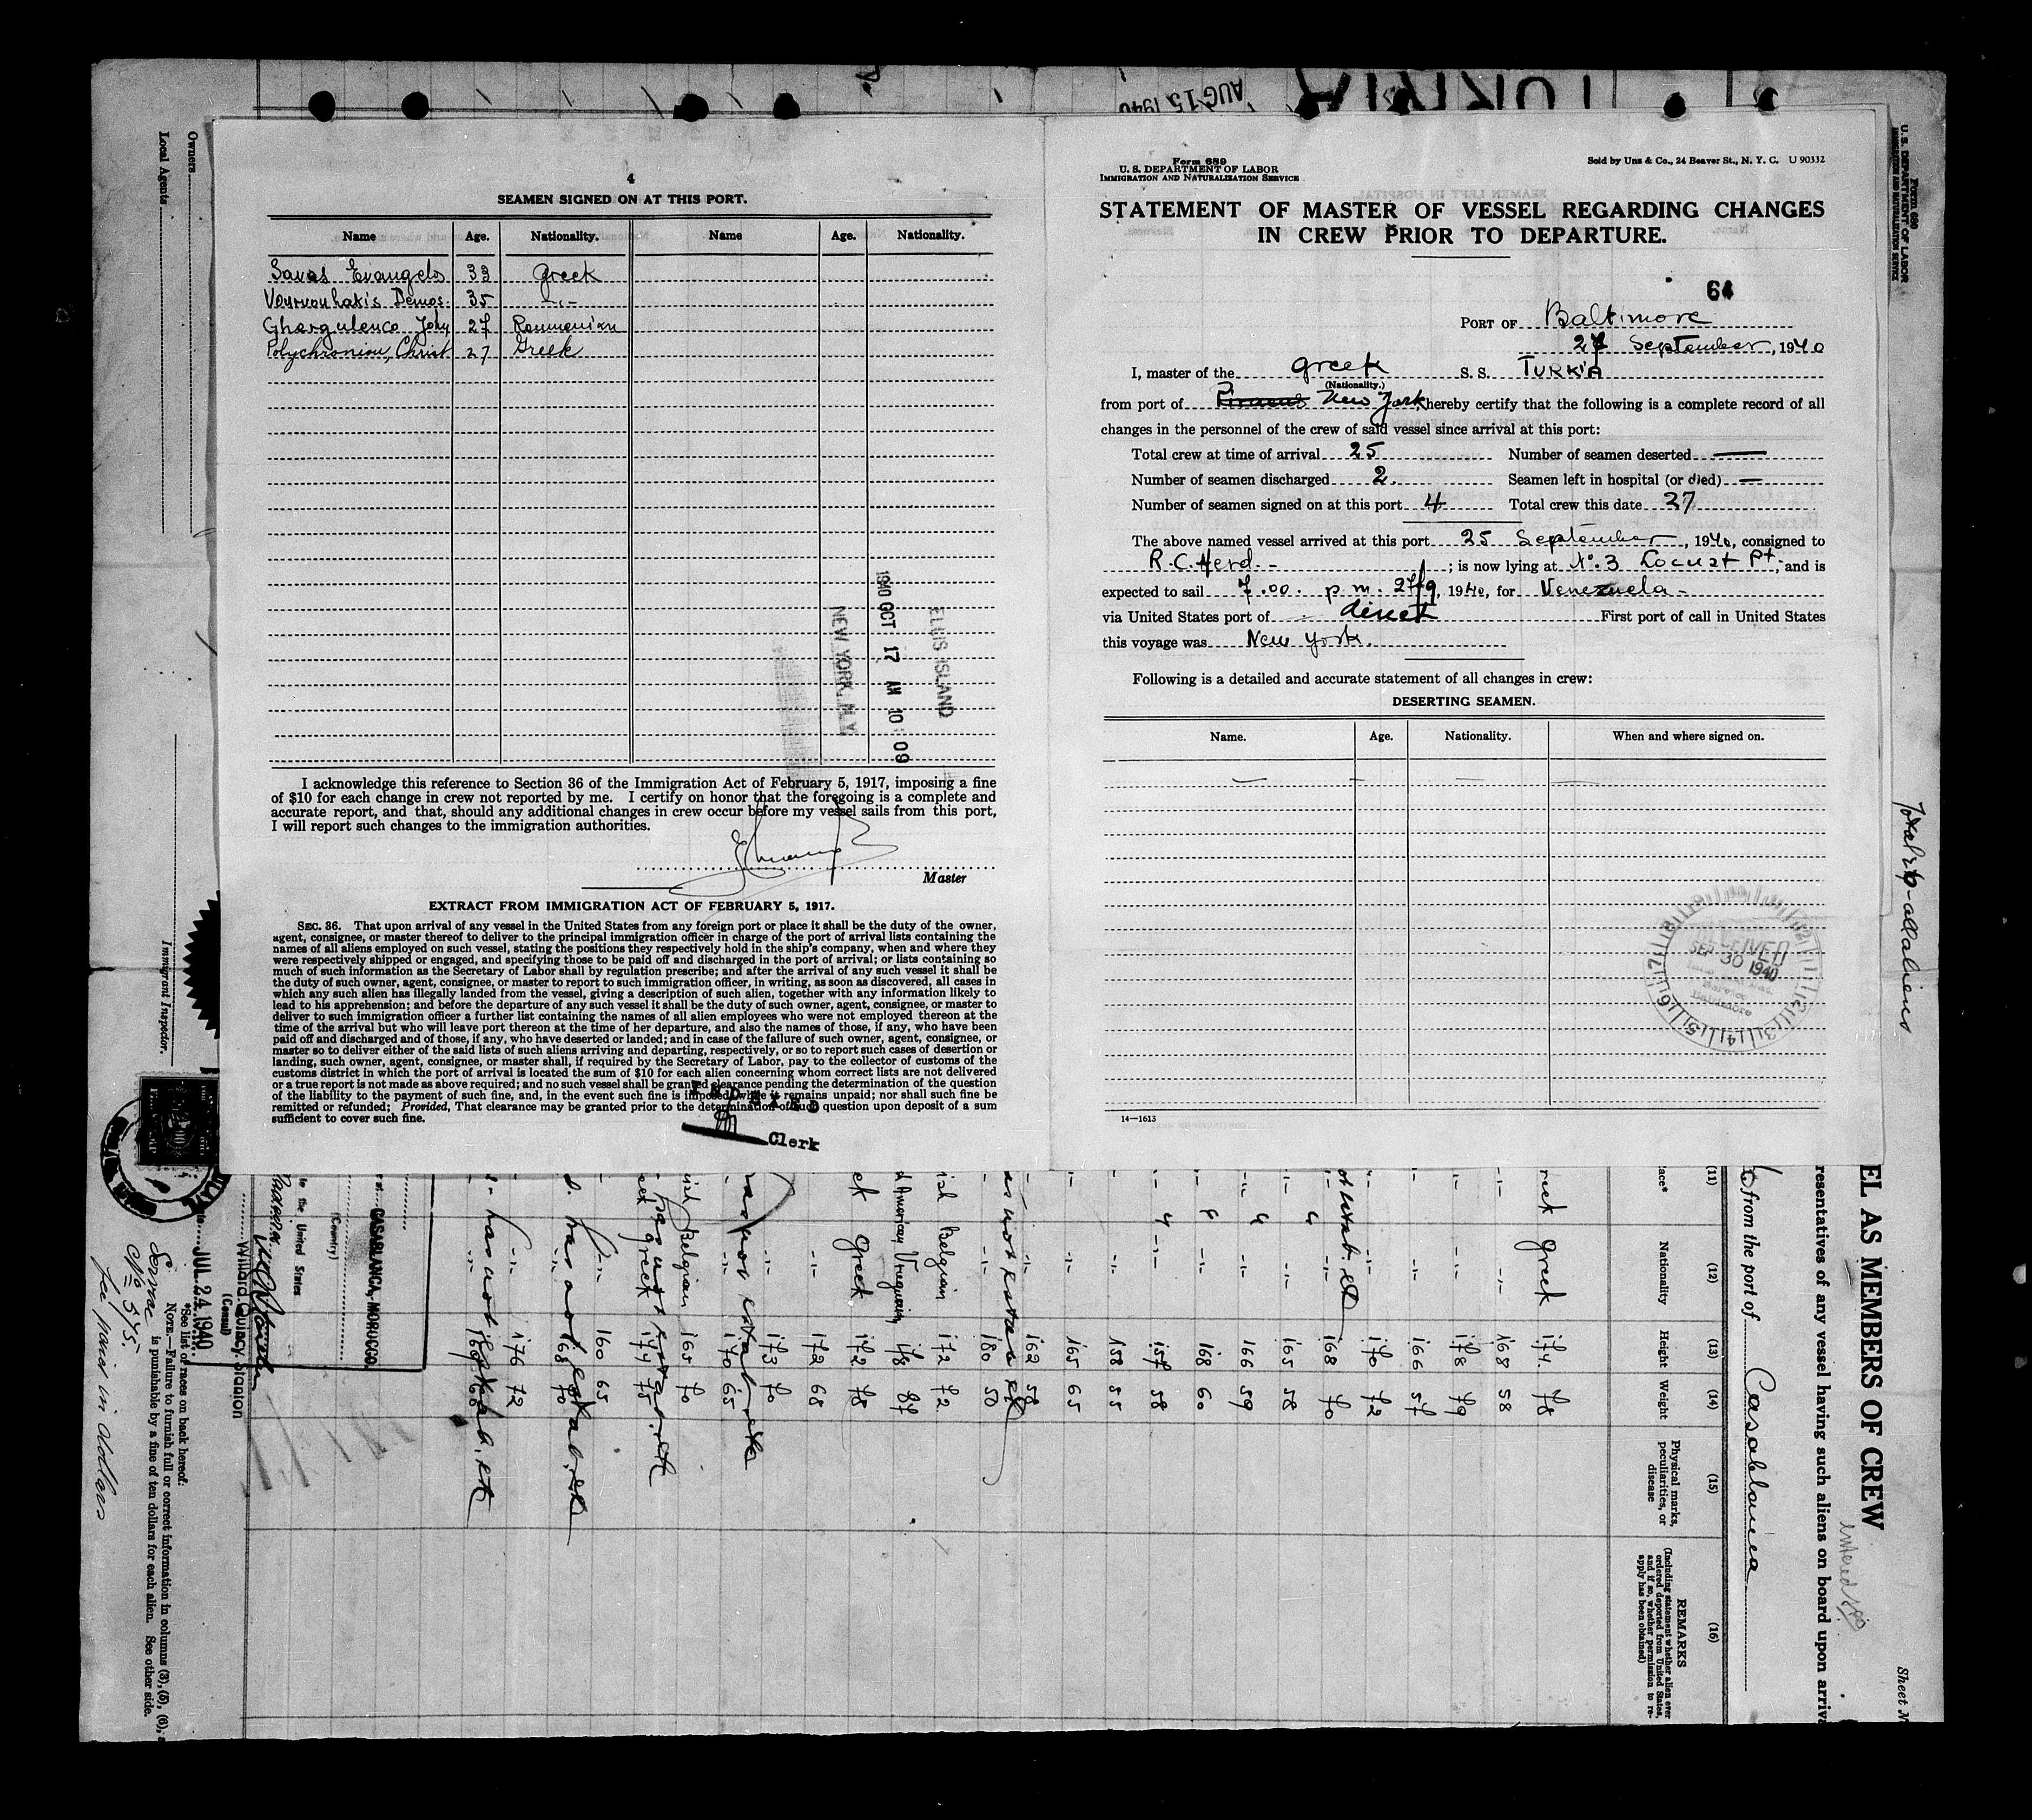 4
SEAMEN SIGNED ON AT THIS PORT.
Name Age. Nationality. Name Age. Nationality.
Savas Evangelos 33 Greek
Demos. 35 -,,-
Ghargulenco John 27 Roumenian
Polychroniou, Christ 27 Greek
ELLIS ISLAND
1940 OCT 17 AM 10 09
NEW YORK, N.Y.
I acknowledge this reference to Section 36 of the Immigration Act of February 5, 1917, imposing a fine
of $10 for each change in crew not reported by me. I certify on honor that the foregoing is a complete and
accurate report, and that, should any additional changes in crew occur before my vessel sails from this port,
I will report such changes to the immigration authorities.
Master
EXTRACT FROM IMMIGRATION ACT OF FEBRUARY 5, 1917.
SEC. 36. That upon arrival of any vessel in the United States from any foreign port or place it shall be the duty of the owner,
agent, consignee, or master thereof to deliver to the principal immigration officer in charge of the port of arrival lists containing the
names of all aliens employed on such vessel, stating the positions they respectively hold in the ship's company, when and where they
were respectively shipped or engaged, and specifying those to be paid off and discharged in the port of arrival; or lists containing so
much of such information as the Secretary of Labor shall by regulation prescribe; and after the arrival of any such vessel it shall be
the duty of such owner, agent, consignee, or master to report to such immigration officer, in writing, as soon as discovered, all cases in
which any such alien has illegally landed from the vessel, giving a description of such alien, together with any information likely to
lead to his apprehension; and before the departure of any such vessel it shall be the duty of such owner, agent, consignee, or master to
deliver to such immigration officer a further list containing the names of all alien employees who were not employed thereon at the
time of the arrival but who will leave port thereon at the time of her departure, and also the names of those, if any, who have been
paid off and discharged and of those, if any, who have deserted or landed; and in case of the failure of such owner, agent, consignee, or
master so to deliver either of the said lists of such aliens arriving and departing, respectively, or so to report such cases of desertion or
landing, such owner, agent, consignee, or master shall, if required by the Secretary of Labor, pay to the collector of customs of the
customs district in which the port of arrival is located the sum of $10 for each alien concerning whom correct lists are not delivered
or a true report is not made as above required; and no such vessel shall be granted clearance pending the determination of the question
of the liability to the payment of such fine, and, in the event such fine is imposed, while it remains unpaid; nor shall such fine be
remitted or refunded; Provided, That clearance may be granted prior to the determination of such question upon deposit of a sum
sufficient to cover such fine.
Clerk
Form 689
U. S. DEPARTMENT OF LABOR
IMMIGRATION AND NATURALIZATION SERVICE
Sold by Unz & Co., 24 Beaver St., N. Y. C. U 90332
STATEMENT OF MASTER OF VESSEL REGARDING CHANGES
IN CREW PRIOR TO DEPARTURE.
64
PORT OF Baltimore
27 September, 1940
I, master of the greek S. S. TURKIA
(Nationality.)
from port of New York, hereby certify that the following is a complete record of all
changes in the personnel of the crew of said vessel since arrival at this port:
Total crew at time of arrival 25 Number of seamen deserted —
Number of seamen discharged 2. Seamen left in hospital (or died) —
Number of seamen signed on at this port 4 Total crew this date 27
The above named vessel arrived at this port 25 September, 1940, consigned to
R.C. Herd. - ; is now lying at No. 3 Locust Pt, and is
expected to sail 7.00. p.m. 27/9, 1940, for Venezuela -
via United States port of direct First port of call in United States
this voyage was New York.
Following is a detailed and accurate statement of all changes in crew:
DESERTING SEAMEN.
Name. Age. Nationality. When and where signed on.
— — — —
RECEIVED
SEP 30 1940
Baltimore
14—1613
AUG 15 1940
TURKIA
Owners
Local Agents
Immigrant Inspector.
Form 689
U. S. DEPARTMENT OF LABOR
IMMIGRATION AND NATURALIZATION SERVICE
EL AS MEMBERS OF CREW
resentatives of any vessel having such aliens on board upon arriva
from the port of Casablanca
Sheet N
(11) (12) (13) (14) (15) (16)
Nationality Height Weight Physical marks, peculiarities, or disease
REMARKS
(Including statement whether alien ever
ordered deported from United States,
and if so, whether permission to re-
apply has been obtained)
Greek 174. 78
-,,- 168 58
-,,- 178 79
-,,- 166 57
-,,- 170 72
-,,- 168 70
-,,- 165 58
-,,- 166 59
-,,- 168 60
-,,- 157 58
-,,- 158 55
-,,- 165 65
-,,- 162 58
-,,- 180 50
Belgian 172 72
Uruguayan 178 87
Greek 172 78
-,,- 172 68
-,,- 173 70
170 65
Belgian 165 70
greek 174 75
-,,- 160 65
168 70
-,,- 176 72
CASABLANCA, MOROCCO.
(Country)
to the United States
Willard Quincy Stanton
(Consul)
JUL 24 1940
*See list of races on back hereof.
NOTE.—Failure to furnish full or correct information in columns (3), (5), (6),
is punishable by a fine of ten dollars for each alien. See other side.
Service
No 545.
fee paid in dollars